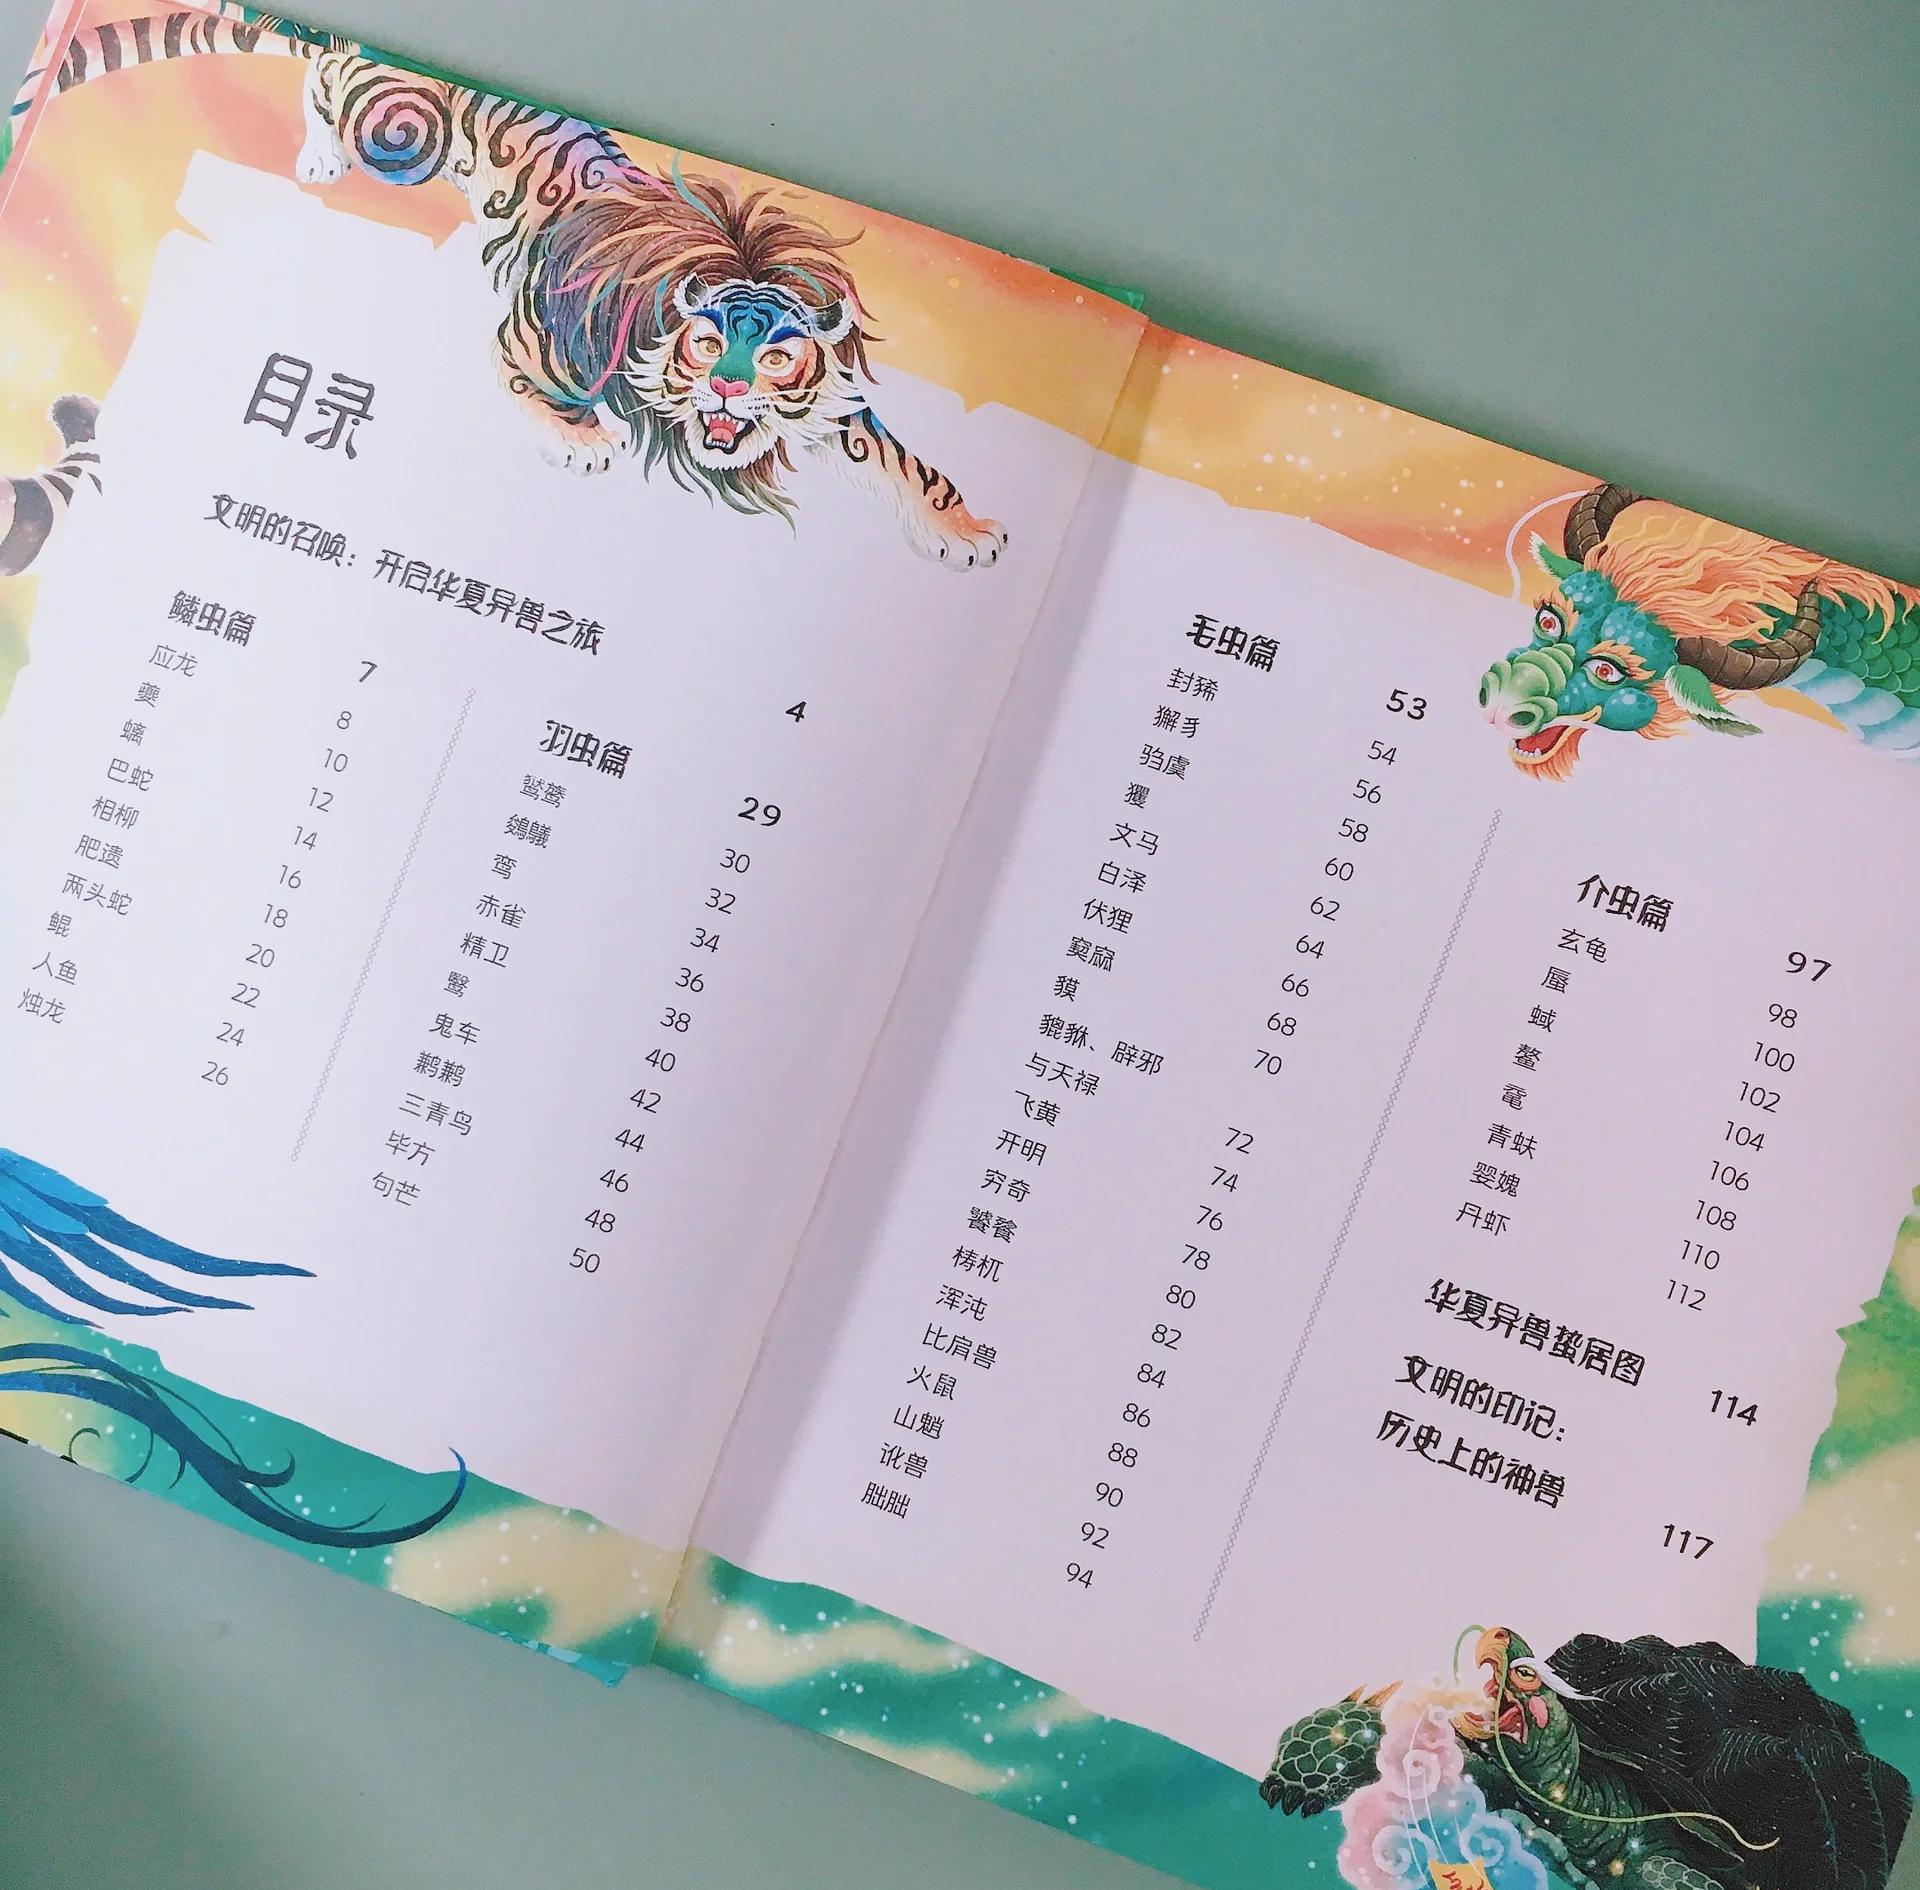 目录
文明的召唤：开启华夏异兽之旅 4
鳞虫篇 7
应龙 8
夔 10
螭 12
巴蛇 14
相柳 16
肥遗 18
两头蛇 20
鲲 22
人鱼 24
烛龙 26
羽虫篇 29
鸑鷟 30
鵕鸃 32
鸾 34
赤雀 36
精卫 38
鹥 40
鬼车 42
鹣鹣 44
三青鸟 46
毕方 48
句芒 50
毛虫篇 53
封豨 54
獬豸 56
驺虞 58
玃 60
文马 62
白泽 64
伏狸 66
窫窳 68
貘 70
貔貅、辟邪
与天禄 72
飞黄 74
开明 76
穷奇 78
饕餮 80
梼杌 82
浑沌 84
比肩兽 86
火鼠 88
山魈 90
讹兽 92
朏朏 94
介虫篇 97
玄龟 98
蜃 100
蜮 102
鳌 104
鼋 106
青蚨 108
婴媿 110
丹虾 112
华夏异兽蛰居图 114
文明的印记：
历史上的神兽 117